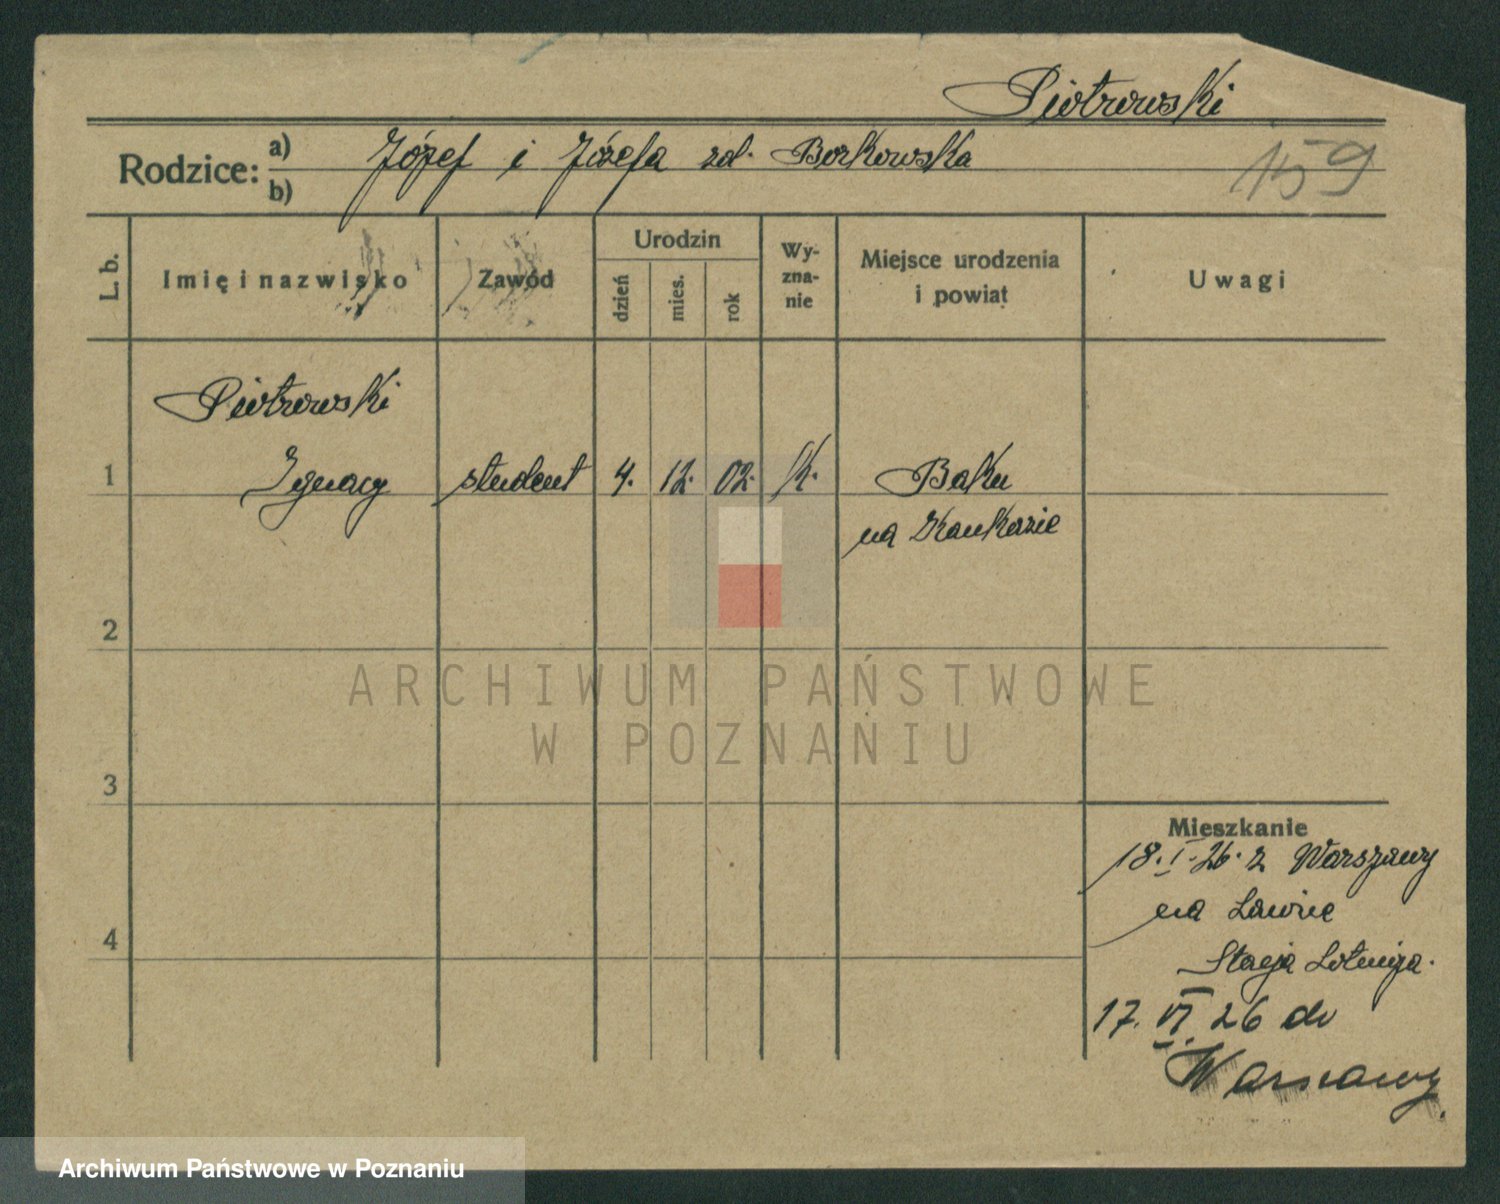 Piotrowski
Rodzice: a) Józef i Józefa zd. Borkowska
b)
159
L. b. Imię i nazwisko Zawód Urodzin dzień mies. rok Wy-zna-nie Miejsce urodzenia i powiat Uwagi
Piotrowski
1 Ignacy student 4. 12. 02. k. Baku
na Kaukazie
2
3
4
Mieszkanie
18. I. 26. z Warszawy
na Lawice
Stacja Lotnicza.
17. VI 26 do
Warszawy.
ARCHIWUM PAŃSTWOWE
W POZNANIU
Archiwum Państwowe w Poznaniu